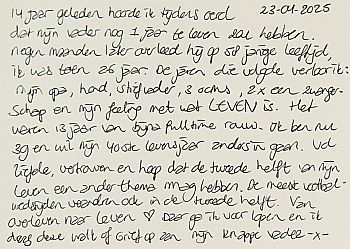 14 jaar geleden hoorde ik tijdens oud 23-04-2025
dat mijn vader nog 1 jaar te leven zou hebben.
negen maanden later overleed hij op 58 jarige leeftijd,
ik was toen 26 jaar. De jaren die volgde verloor ik:
mijn opa, hond, stiefvader, 3 ooms, 2x een zwanger-
schap en mijn feeling met wat LEVEN is. Het
waren 13 jaar van bijna fulltime rouw. Ik ben nu
39 en wil mijn 40ste levensjaar anders in gaan. Vol
liefde, vertrouwen en hoop dat de tweede helft van mijn
leven een ander thema mag hebben. De meeste voetbal-
wedstrijden worden ook in de tweede helft. Van
overleven naar leven ♡ Daar ga ik voor lopen en ik
draag deze walk of Grief op aan mijn knappe vader -x-